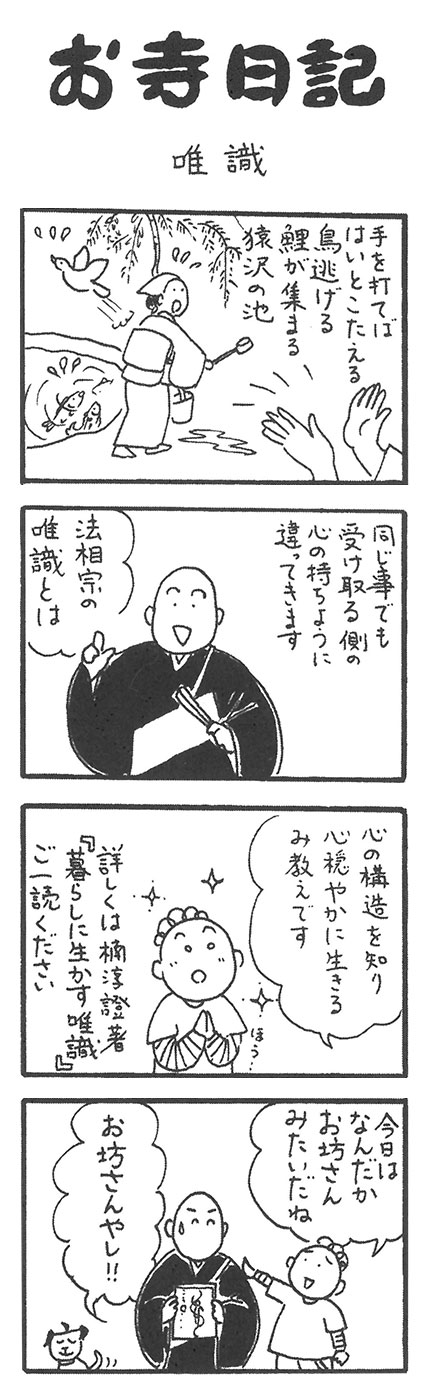 お寺日記
唯識
手を打てば
はいとこたえる
鳥逃げる
鯉が集まる
猿沢の池
同じ事でも
受け取る側の
心の持ちように
違ってきます
法相宗の
唯識とは
心の構造を知り
心穏やかに生きる
み教えです
ほうっ
詳しくは楠淳證著
『暮らしに生かす唯識』
ご一読ください
今日は
なんだか
お坊さん
みたいだね
お坊さんやし!!